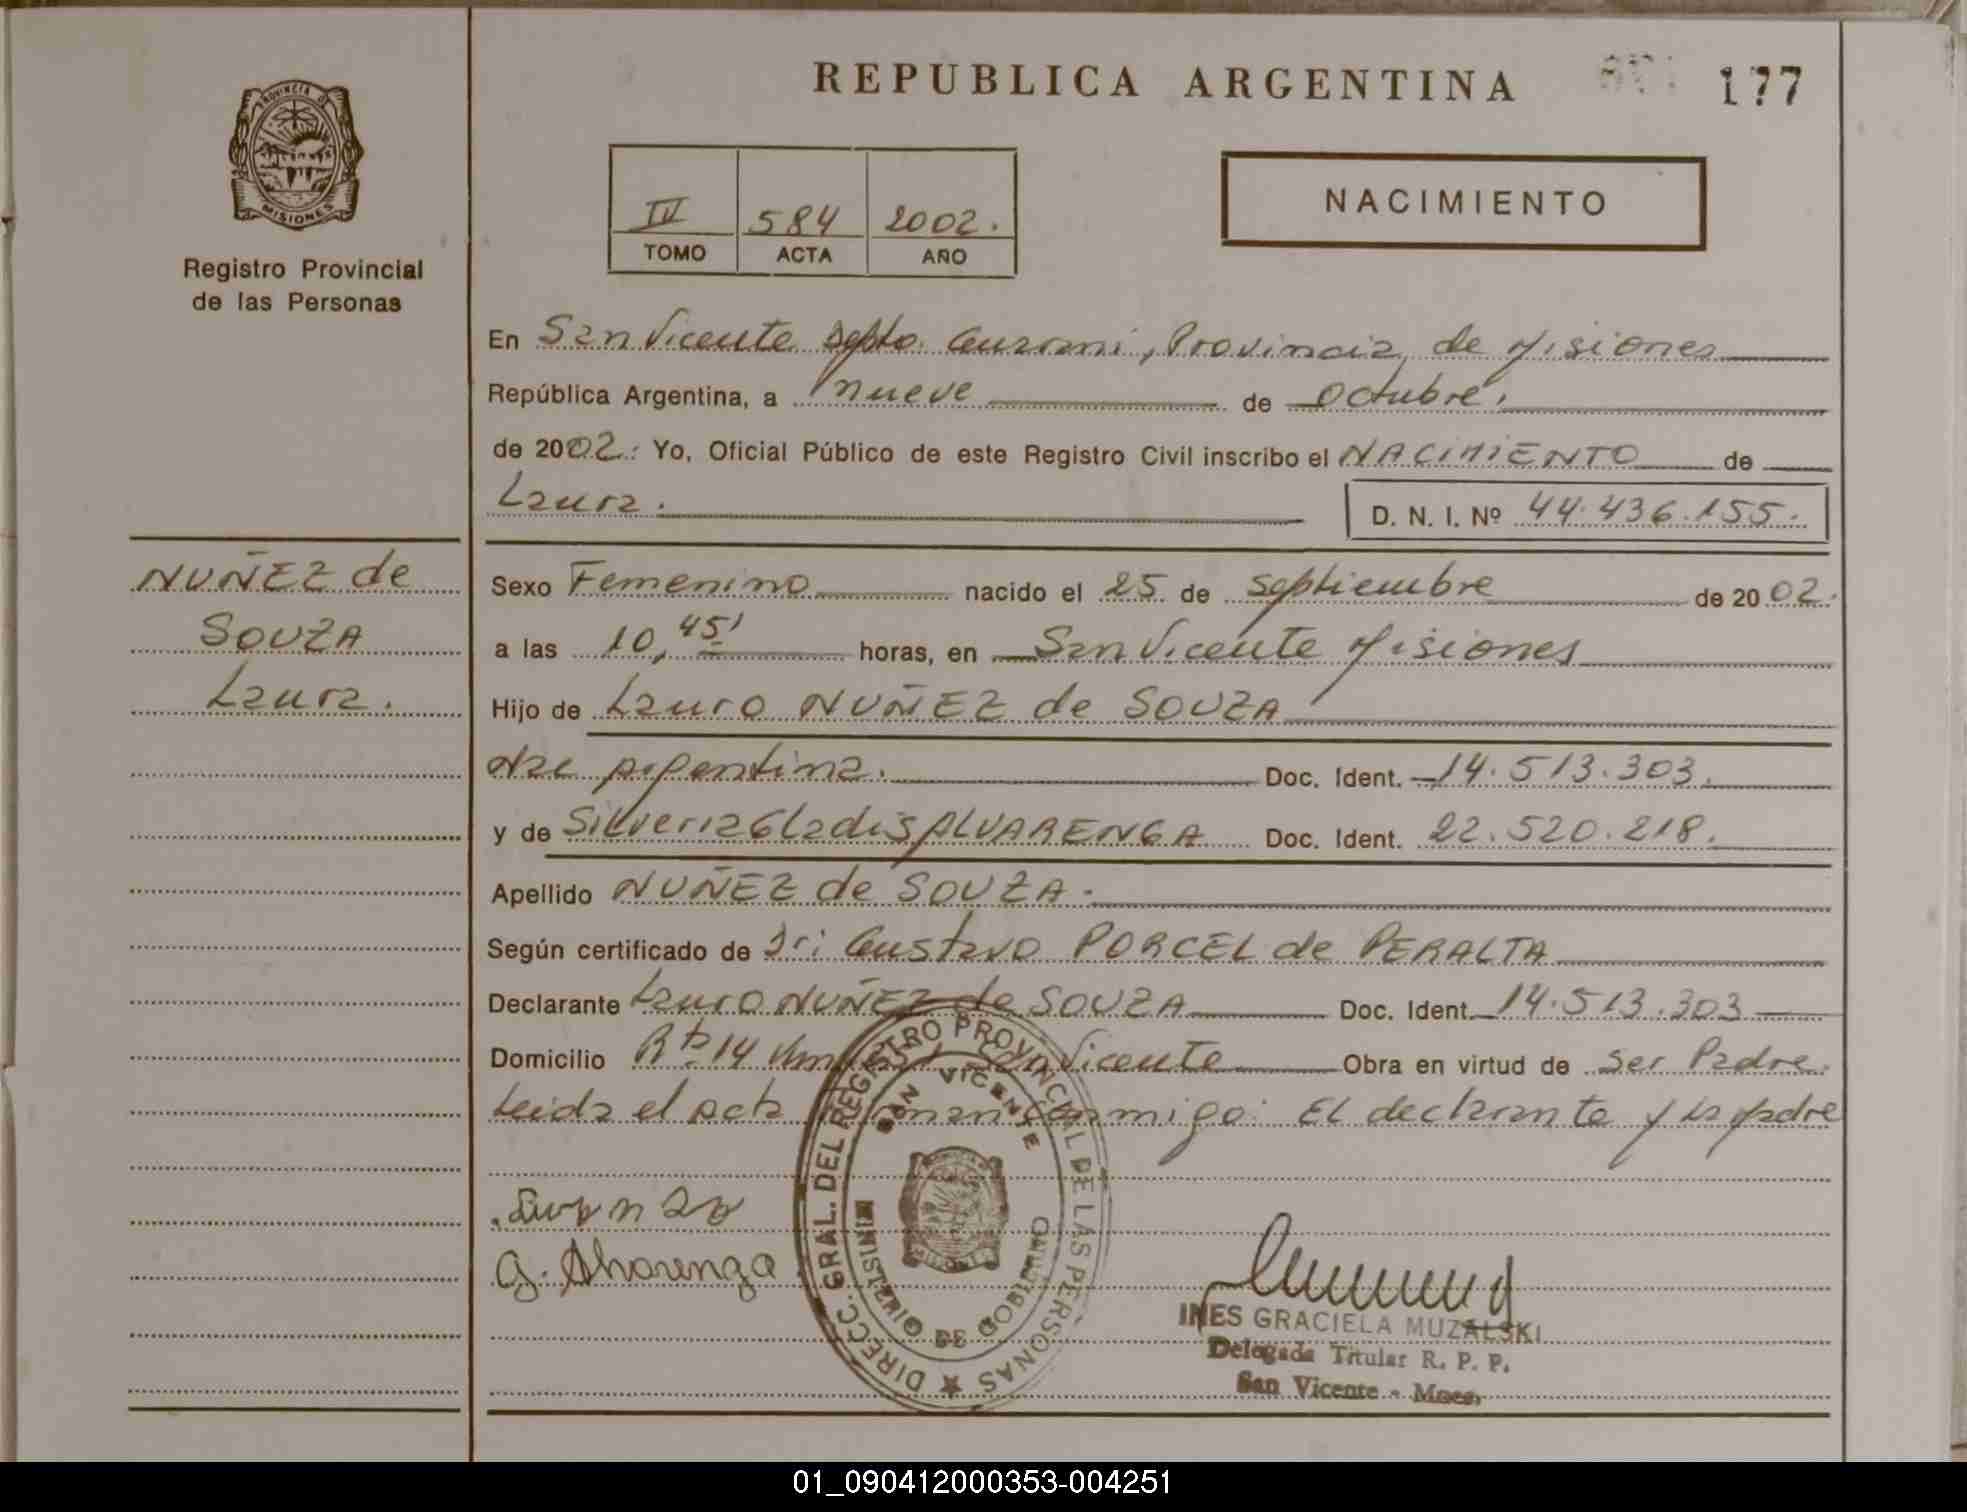 REPUBLICA ARGENTINA
177
PROVINCIA DE
MISIONES
Registro Provincial
de las Personas
IV 584 2002.
TOMO ACTA AÑO
NACIMIENTO
En San Vicente Depto. Guarani, Provincia de Misiones
República Argentina, a nueve de Octubre.
de 2002. Yo, Oficial Público de este Registro Civil inscribo el NACIMIENTO de
Laura.
D. N. I. Nº 44.436.155.
NUÑEZ de
SOUZA
Laura.
Sexo Femenino nacido el 25 de septiembre de 2002.
a las 10,45' horas, en San Vicente Misiones
Hijo de Lauro NUÑEZ de SOUZA
Nac Argentina. Doc. Ident. 14.513.303.
y de Silveria Gladis ALVARENGA Doc. Ident. 22.520.218.
Apellido NUÑEZ de SOUZA.
Según certificado de Gustavo PORCEL de PERALTA
Declarante Lauro NUÑEZ de SOUZA Doc. Ident. 14.513.303
Domicilio Rta 14 Vicente Obra en virtud de ser Padre.
Leida el acta conmigo: El declarante y la madre
DIRECC. GRAL. DEL REGISTRO PROVINCIAL DE LAS PERSONAS
SAN VICENTE
MINISTERIO DE GOBIERNO
G. Alvarenga
INES GRACIELA MUZALSKI
Delegada Titular R. P. P.
San Vicente - Mnes.
01_090412000353-004251